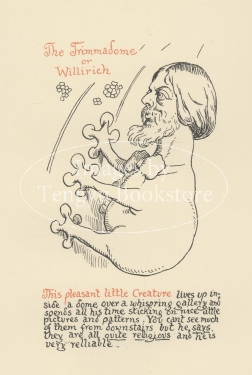 The Trimmadome
or
Willirich
Tengu's Bookstore
This pleasant little Creature lives up in-
side a dome over a whispring gallery and
spends all his time sticking on nice little
pictures and patterns. You cant see much
of them from downstairs but he says
they are all quite religious and he is
very relliable.